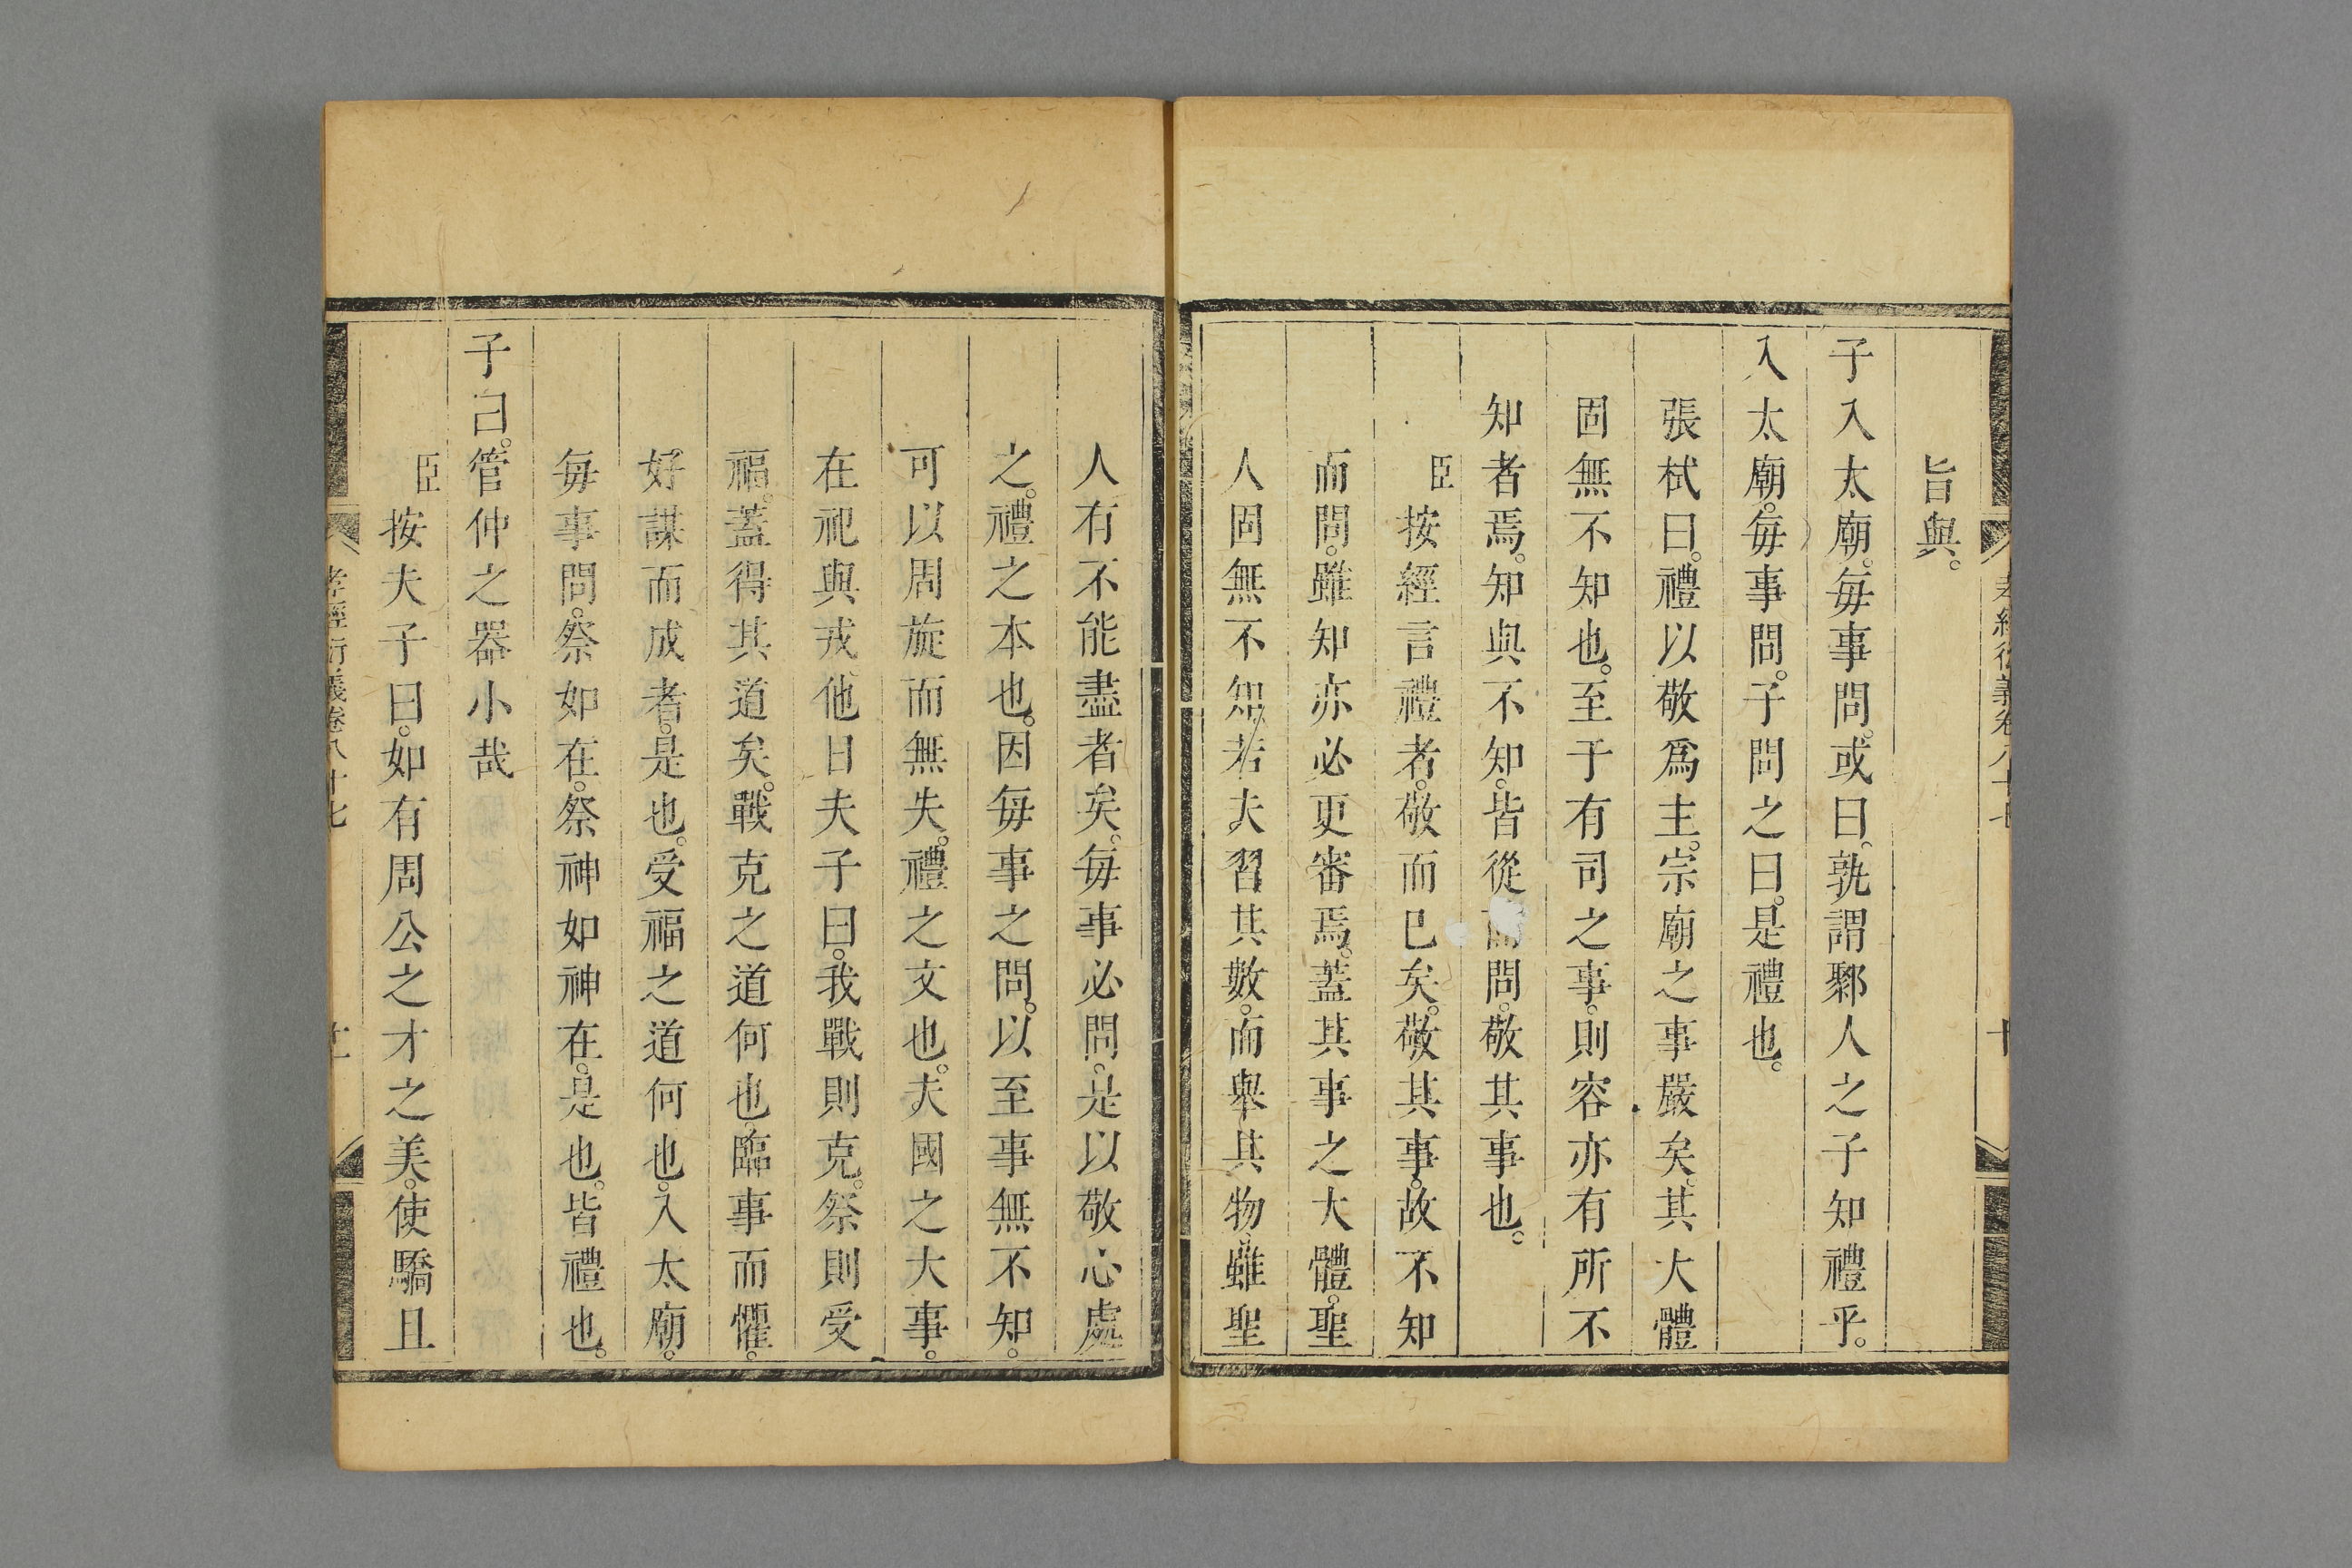 旨與。
子入太廟。毎事問。或曰。孰謂鄹人之子知禮乎。
入太廟。毎事問。子問之曰。是禮也。
張栻曰。禮以敬爲主。宗廟之事嚴矣。其大體
固無不知也。至于有司之事。則容亦有所不
知者焉。知與不知。皆從而問。敬其事也。
臣按經言禮者。敬而已矣。敬其事。故不知
而問。雖知亦必更審焉。蓋其事之大體。聖
人固無不知。若夫習其數。而舉其物。雖聖
人有不能盡者矣。毎事必問。是以敬心處
之。禮之本也。因毎事之問。以至事無不知。
可以周旋而無失。禮之文也。夫國之大事。
在祀與戎。他日夫子曰。我戰則克。祭則受
福。蓋得其道矣。戰克之道何也。臨事而懼。
好謀而成者。是也。受福之道何也。入太廟。
毎事問。祭如在。祭神如神在。是也。皆禮也。
子曰。管仲之器小哉
臣按夫子曰。如有周公之才之美。使驕且
孝經衍義卷八十七